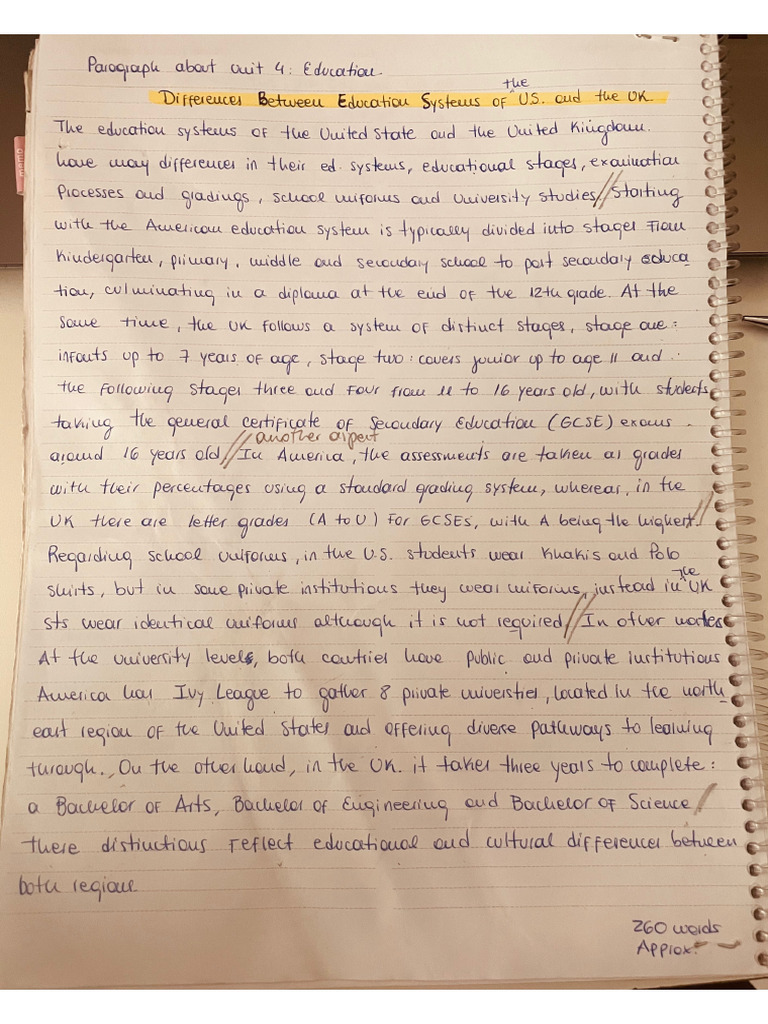 Paragraph about Unit 4: Education.
the
Differences Between Education Systems of U.S. and the UK.
The education systems of the United State and the United Kingdom.
have may differences in their ed. systems, educational stages, examination
Processes and gradings, school uniforms and University studies// Starting
with the American education system is typically divided into stages From
Kindergarten, primary, middle and secondary school to post secondary educa
tion, culminating in a diploma at the end of the 12th grade. At the
same time, the UK follows a system of distinct stages, stage one:
infants up to 7 years of age, stage two: covers junior up to age 11 and
the following stages three and Four from 11 to 16 years old, with students
taking the general certificate of Secondary Education (GCSE) exams.
another aspect
around 16 years old// In America, the assessments are taken as grades
with their percentages using a standard grading system, whereas, in the
UK there are letter grades (A to U) For GCSEs, with A being the highest.//
Regarding school uniforms, in the U.S. students wear Khakis and Polo
the
shirts, but in some private institutions they wear uniforms, instead in UK
sts wear identical uniforms although it is not required// In other
At the university levels, both countries have public and private institutions
America has Ivy League to gather 8 private universities, located in the north
east region of the United States and offering diverse pathways to learning
through., On the other hand, in the UK. it takes three years to complete:
a Bachelor of Arts, Bachelor of Engineering and Bachelor of Science/
these distinctions reflect educational and cultural differences between
both regions
260 words
Approx.